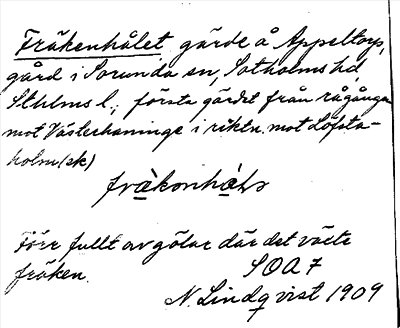 Fräkenhålet gärde å Appeltorp,
gård i Sorunda sn, Sotholms hd,
Sthlms l.; första gärdet från rågången
mot Västerhaninge i riktn. mot Löfsta-
holm (sk)
fräkonhåls
Förr fullt av gölar där det växte
fräken.
SOA 7
N. Lindqvist 1909